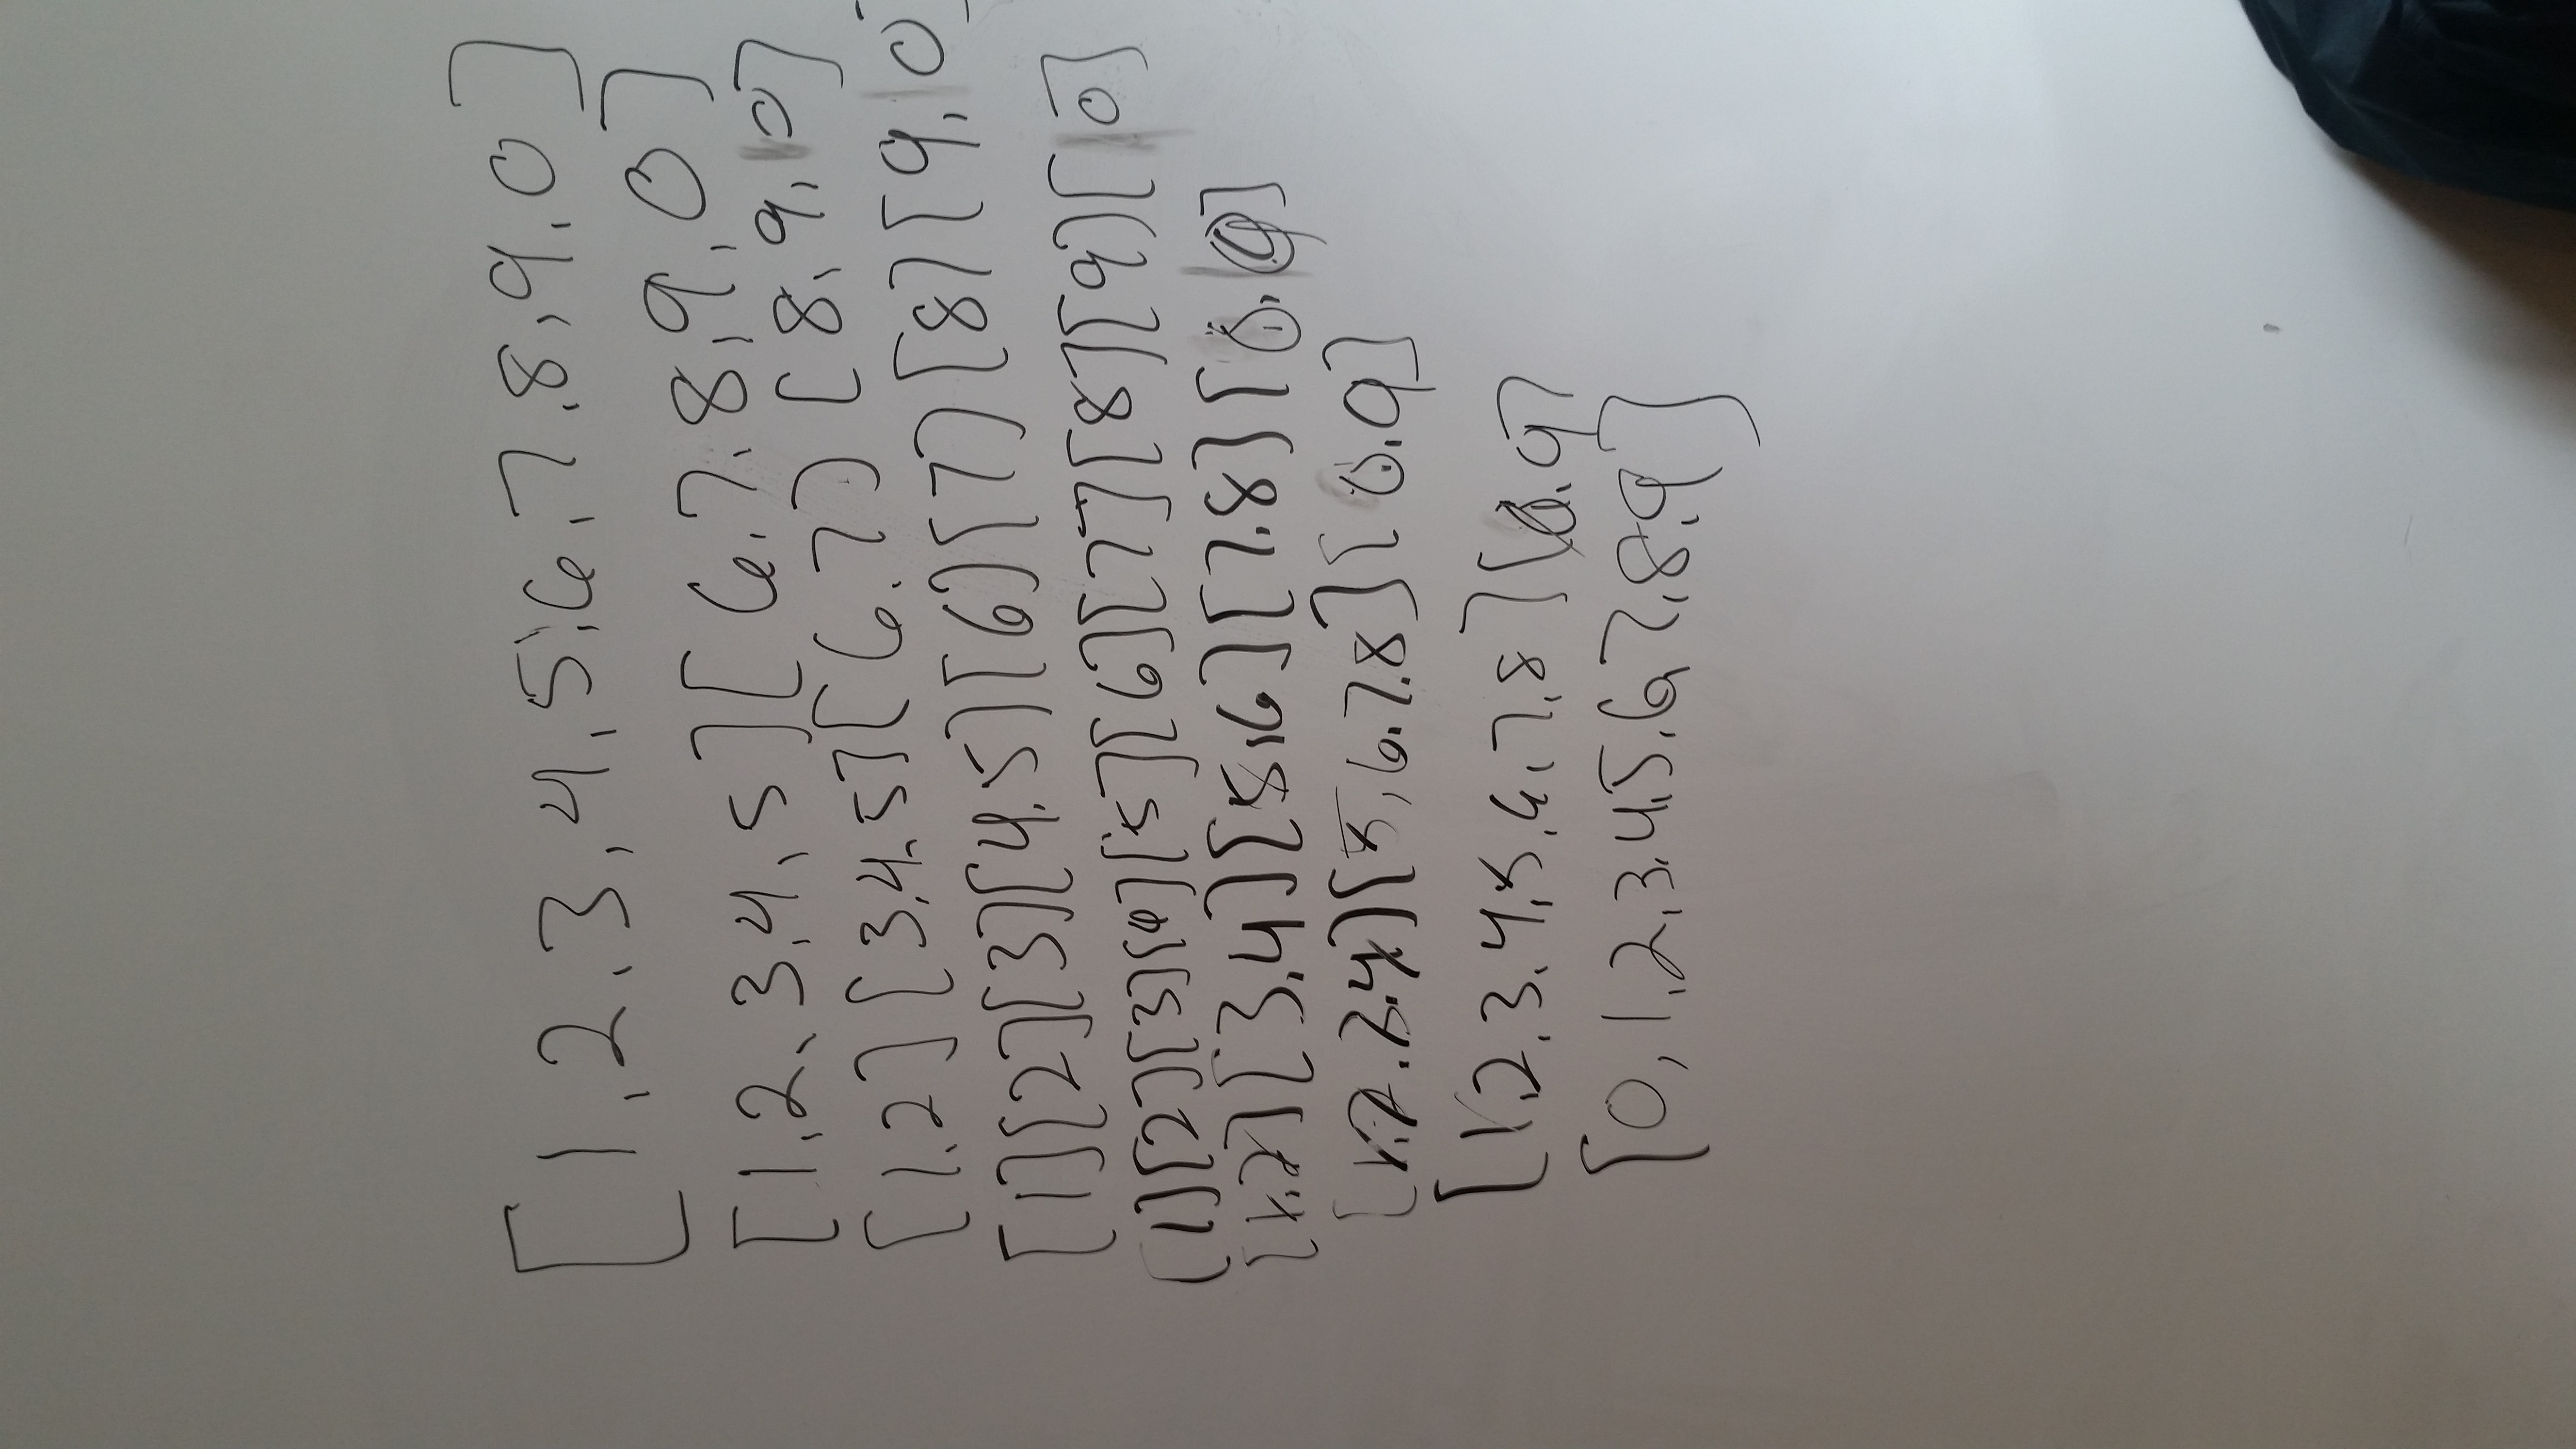 [1,2,3,4,5,6,7,8,9,0]
[1,2,3,4,5][6,7,8,9,0]
[1,2][3,4,5][6,7][8,9,0]
[1][2][3][4,5][6][7][8][9,0]
[1][2][3][4][5][6][7][8][9][0]
[1,2][3,4][5,6][7,8][0,9]
[1,2,3,4][5,6,7,8][0,9]
[1,2,3,4,5,6,7,8][0,9]
[0,1,2,3,4,5,6,7,8,9]